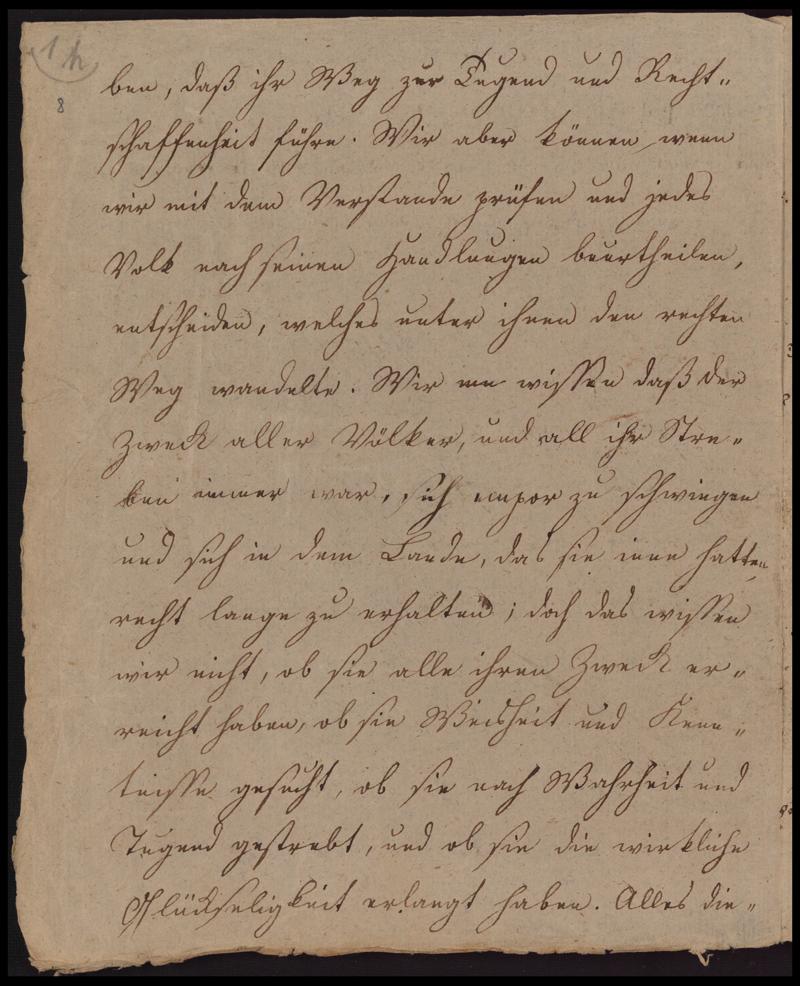 1h
8
ben, daß ihr Weg zur Tugend und Recht„
schaffenheit führe. Wir aber können wenn
wir mit dem Verstande prüfen und jedes
Volk nach seinen Handlungen beurtheilen,
entscheiden, welches unter ihnen den rechten
Weg wandelte. Wir wissen daß der
Zweck aller Völker, und all ihr Stre„
ben immer war, sich empor zu schwingen
und sich in dem Lande, das sie inne hatten
recht lange zu erhalten; doch das wissen
wir nicht, ob sie alle ihren Zweck er„
reicht haben, ob sie Weisheit und Kenn„
tnisse gesucht, ob sie nach Wahrheit und
Tugend gestrebt, und ob sie die wirkliche
Glückseligkeit erlangt haben. Alles die„